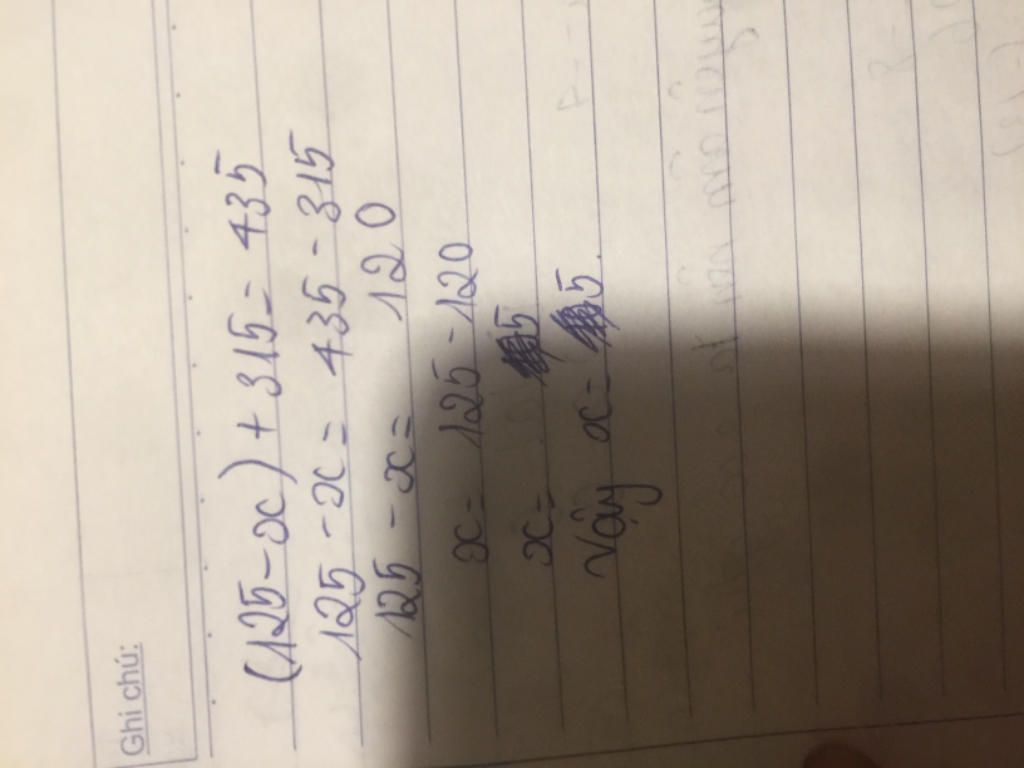 Ghi chú:
(125 - x) + 315 = 435
125 - x = 435 - 315
125 - x = 120
x = 125 - 120
x = 5
Vậy x = 5.